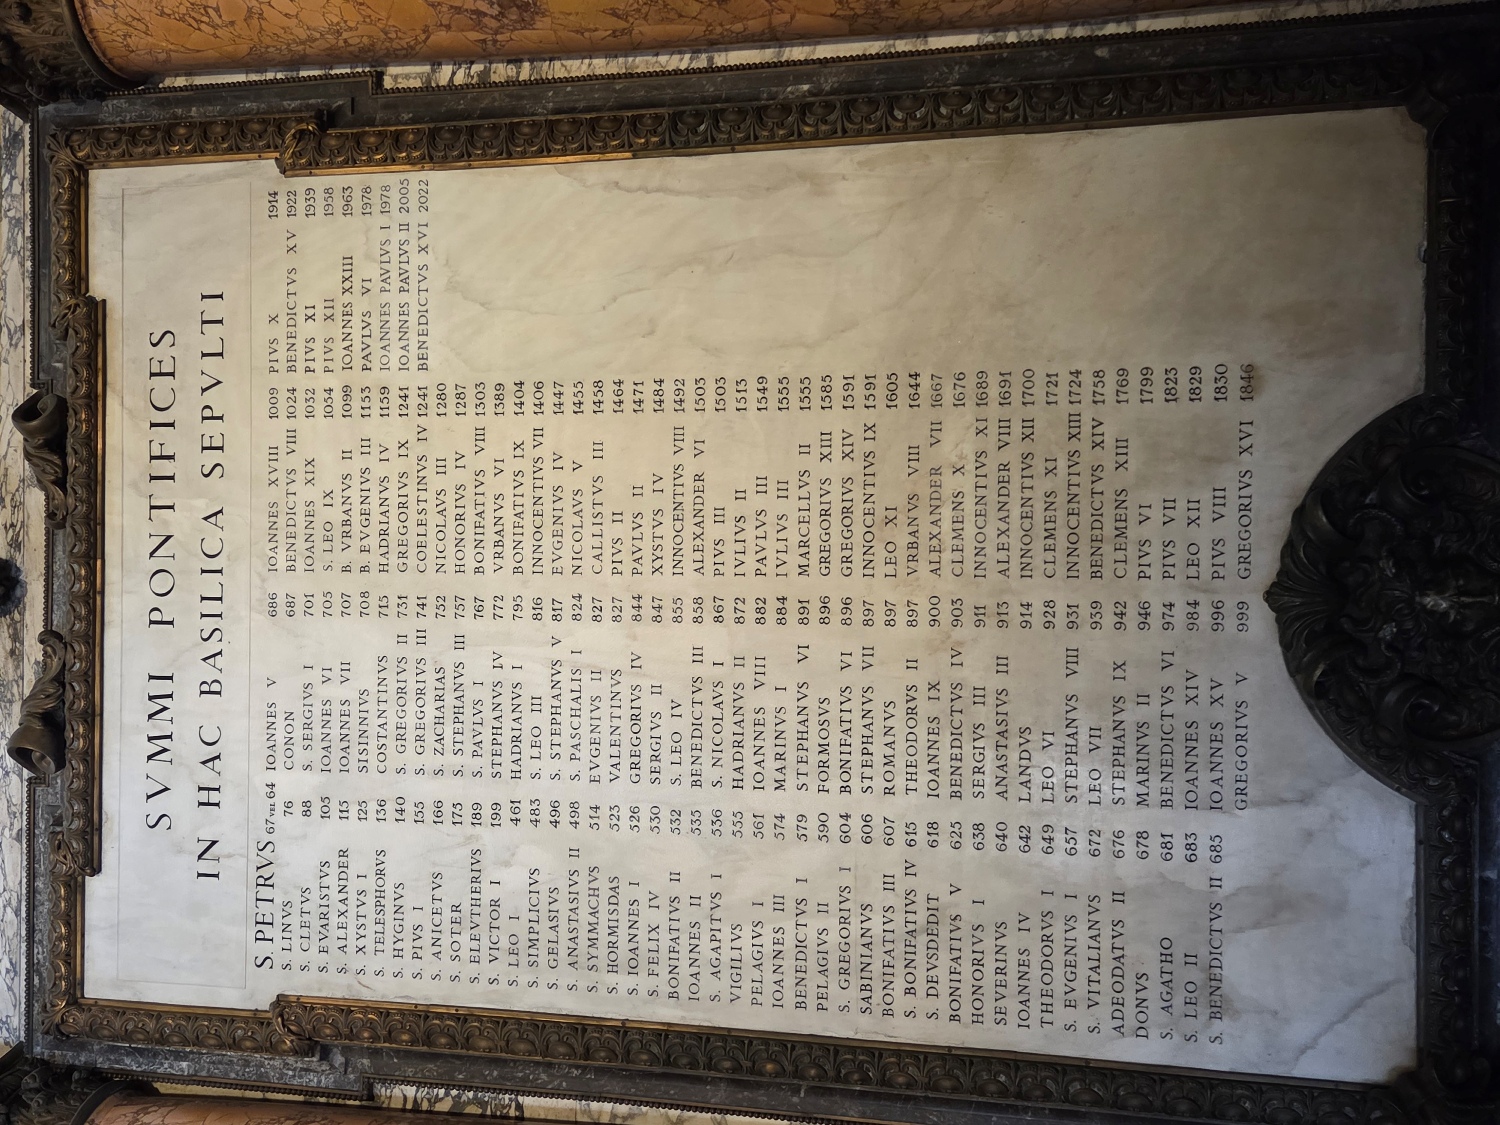 SVMMI PONTIFICES
IN HAC BASILICA SEPVLTI
S. PETRVS 67 VEL 64
S. LINVS 76
S. CLETVS 88
S. EVARISTVS 105
S. ALEXANDER 115
S. XYSTVS I 125
S. TELESPHORVS 136
S. HYGINVS 140
S. PIVS I 155
S. ANICETVS 166
S. SOTER 175
S. ELEVTHERIVS 189
S. VICTOR I 199
S. LEO I 461
S. SIMPLICIVS 483
S. GELASIVS 496
S. ANASTASIVS II 498
S. SYMMACHVS 514
S. HORMISDAS 523
S. IOANNES I 526
S. FELIX IV 530
BONIFATIVS II 532
IOANNES II 535
S. AGAPITVS I 536
VIGILIVS 555
PELAGIVS I 561
IOANNES III 574
BENEDICTVS I 579
PELAGIVS II 590
S. GREGORIVS I 604
SABINIANVS 606
BONIFATIVS III 607
S. BONIFATIVS IV 615
S. DEVSDEDIT 618
BONIFATIVS V 625
HONORIVS I 638
SEVERINVS 640
IOANNES IV 642
THEODORVS I 649
S. EVGENIVS I 657
S. VITALIANVS 672
ADEODATVS II 676
DONVS 678
S. AGATHO 681
S. LEO II 683
S. BENEDICTVS II 685
IOANNES V 686
CONON 687
S. SERGIVS I 701
IOANNES VI 705
IOANNES VII 707
SISINNIVS 708
COSTANTINVS 715
S. GREGORIVS II 731
S. GREGORIVS III 741
S. ZACHARIAS 752
S. STEPHANVS III 757
S. PAVLVS I 767
STEPHANVS IV 772
HADRIANVS I 795
S. LEO III 816
S. STEPHANVS V 817
S. PASCHALIS I 824
EVGENIVS II 827
VALENTINVS 827
GREGORIVS IV 844
SERGIVS II 847
S. LEO IV 855
BENEDICTVS III 858
S. NICOLAVS I 867
HADRIANVS II 872
IOANNES VIII 882
MARINVS I 884
STEPHANVS VI 891
FORMOSVS 896
BONIFATIVS VI 896
STEPHANVS VII 897
ROMANVS 897
THEODORVS II 897
IOANNES IX 900
BENEDICTVS IV 903
SERGIVS III 911
ANASTASIVS III 913
LANDVS 914
LEO VI 928
STEPHANVS VIII 931
LEO VII 939
STEPHANVS IX 942
MARINVS II 946
BENEDICTVS VI 974
IOANNES XIV 984
IOANNES XV 996
GREGORIVS V 999
IOANNES XVIII 1009
BENEDICTVS VIII 1024
IOANNES XIX 1032
S. LEO IX 1054
B. VRBANVS II 1099
B. EVGENIVS III 1153
HADRIANVS IV 1159
GREGORIVS IX 1241
COELESTINVS IV 1241
NICOLAVS III 1280
HONORIVS IV 1287
BONIFATIVS VIII 1303
VRBANVS VI 1389
BONIFATIVS IX 1404
INNOCENTIVS VII 1406
EVGENIVS IV 1447
NICOLAVS V 1455
CALLISTVS III 1458
PIVS II 1464
PAVLVS II 1471
XYSTVS IV 1484
INNOCENTIVS VIII 1492
ALEXANDER VI 1503
PIVS III 1503
IVLIVS II 1513
PAVLVS III 1549
IVLIVS III 1555
MARCELLVS II 1555
GREGORIVS XIII 1585
GREGORIVS XIV 1591
INNOCENTIVS IX 1591
LEO XI 1605
VRBANVS VIII 1644
ALEXANDER VII 1667
CLEMENS X 1676
INNOCENTIVS XI 1689
ALEXANDER VIII 1691
INNOCENTIVS XII 1700
CLEMENS XI 1721
INNOCENTIVS XIII 1724
BENEDICTVS XIV 1758
CLEMENS XIII 1769
PIVS VI 1799
PIVS VII 1823
LEO XII 1829
PIVS VIII 1830
GREGORIVS XVI 1846
PIVS X 1914
BENEDICTVS XV 1922
PIVS XI 1939
PIVS XII 1958
IOANNES XXIII 1963
PAVLVS VI 1978
IOANNES PAVLVS I 1978
IOANNES PAVLVS II 2005
BENEDICTVS XVI 2022